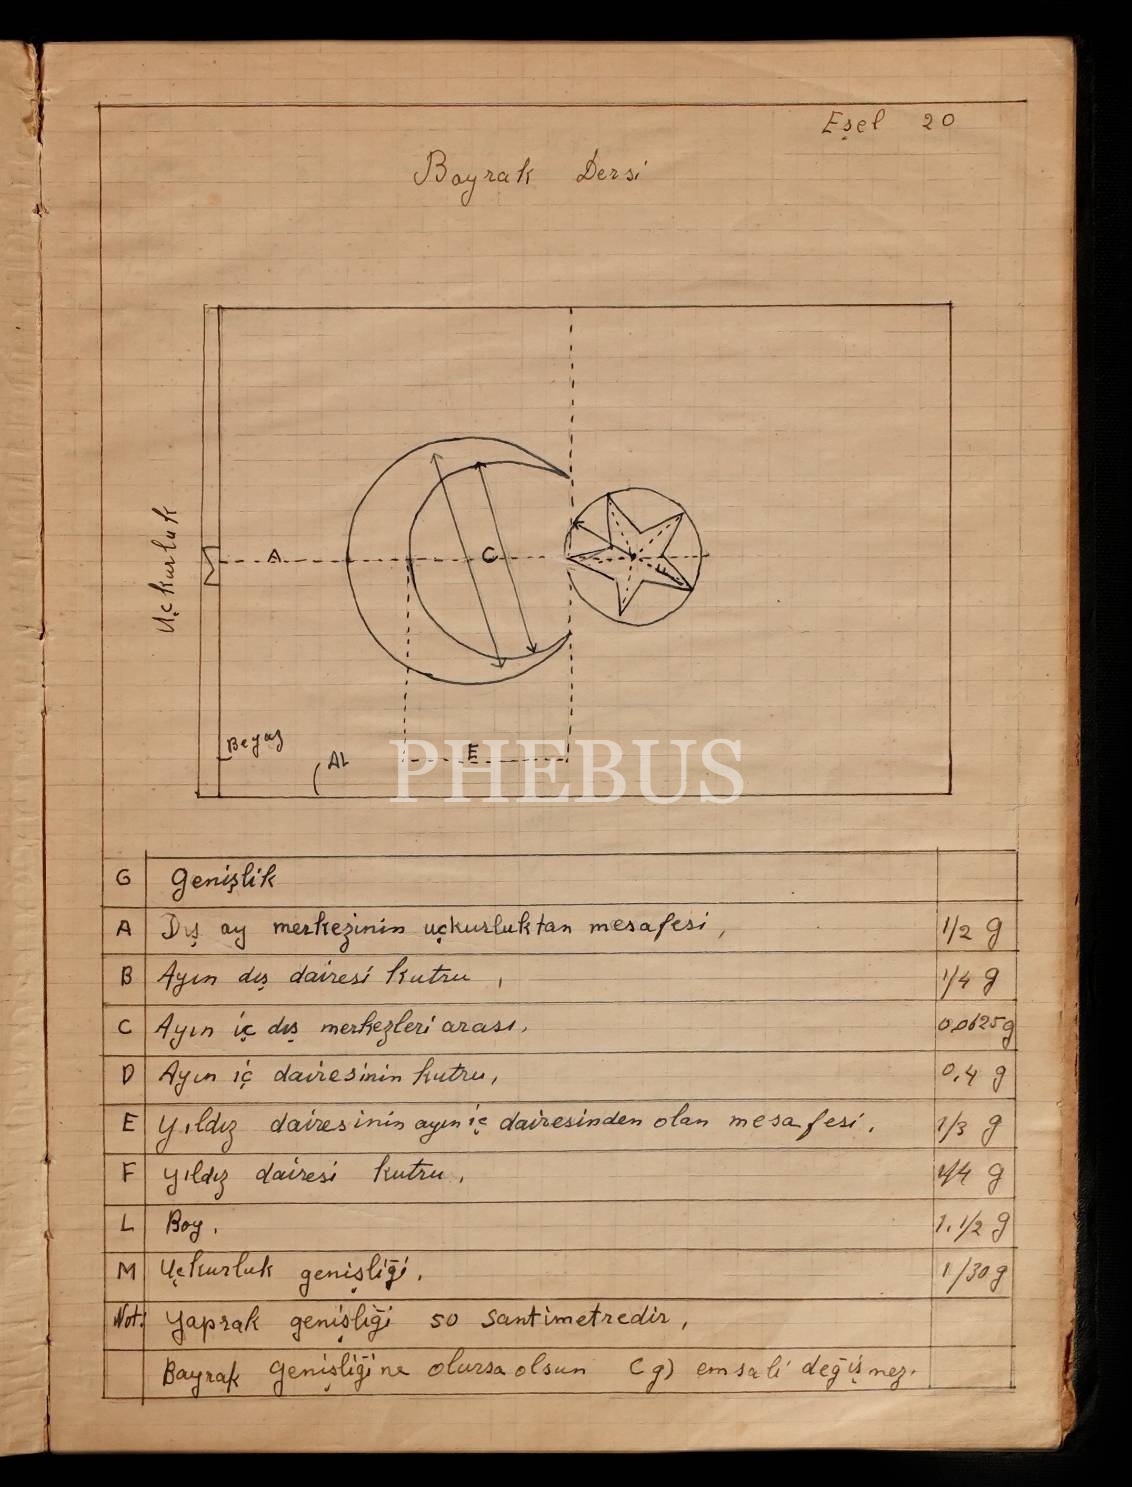 Eşel 20
Bayrak Dersi
Uçkurluk
A
C
F
Beyaz
AL
E
PHEBUS
G Genişlik
A Dış ay merkezinin uçkurluktan mesafesi, 1/2 g
B Ayın dış dairesi kutru, 1/4 g
C Ayın iç dış merkezleri arası, 0,0625g
D Ayın iç dairesinin kutru, 0,4 g
E Yıldız dairesinin ayın iç dairesinden olan mesafesi. 1/3 g
F Yıldız dairesi kutru, 1/4 g
L Boy. 1.1/2 g
M Uçkurluk genişliği. 1/30 g
Not: Yaprak genişliği 50 Santimetredir,
Bayrak Genişliği ne olursa olsun (g) emsali değişmez.